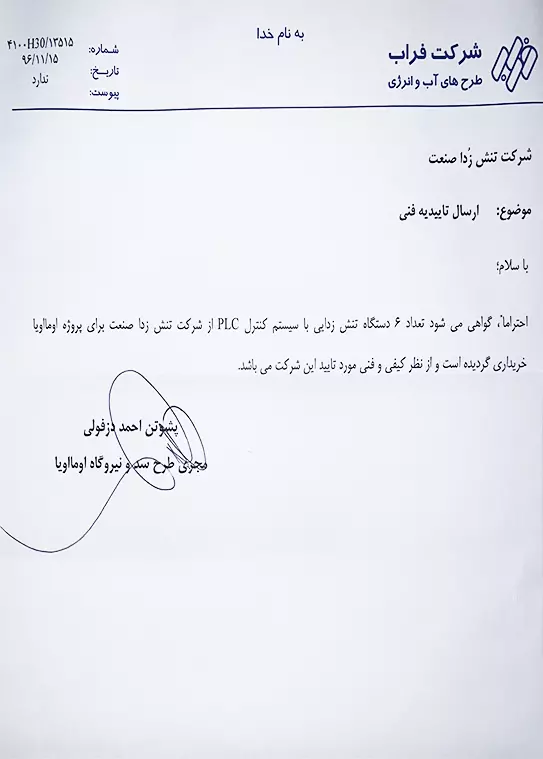 به نام خدا
شرکت فراب
طرح های آب و انرژی
شماره: ۴۱۰۰H30/۱۳۵۱۵
تاریخ: ۹۶/۱۱/۱۵
پیوست: ندارد
شرکت تنش زُدا صنعت
موضوع: ارسال تاییدیه فنی
با سلام؛
احتراماً، گواهی می شود تعداد ۶ دستگاه تنش زدایی با سیستم کنترل PLC از شرکت تنش زدا صنعت برای پروژه اومااویا
خریداری گردیده است و از نظر کیفی و فنی مورد تایید این شرکت می باشد.
پشوتن احمد دزفولی
مجری طرح سد و نیروگاه اومااویا